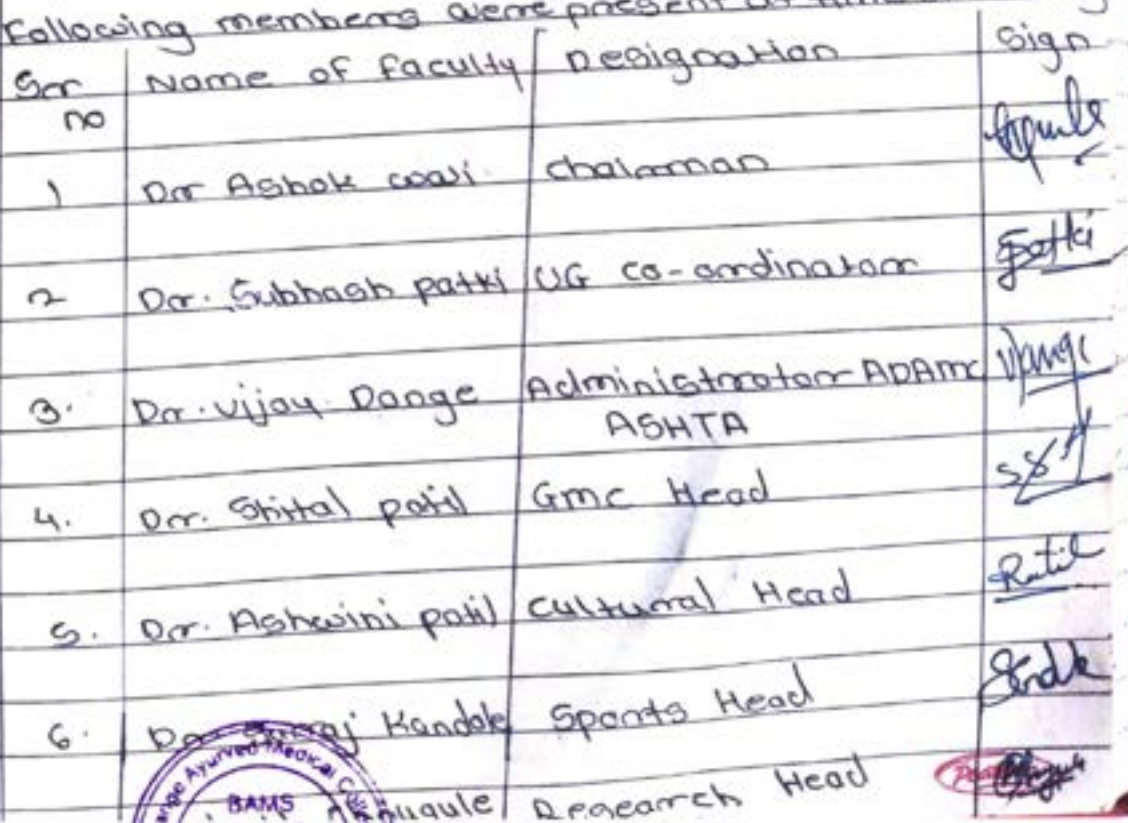 Following members were present
Sr Name of Faculty Designation Sign
no
1 Dr Ashok Wali Chairman
2 Dr. Subhash Patki UG Co-ordinator Patki
3. Dr. Vijay Dange Administrator ADAMC
ASHTA
4. Dr. Shital Patil GMC Head
5. Dr. Ashwini Patil Cultural Head Patil
6. Dr Kandale Sports Head
Research Head
Ayurved Medical
BAMS